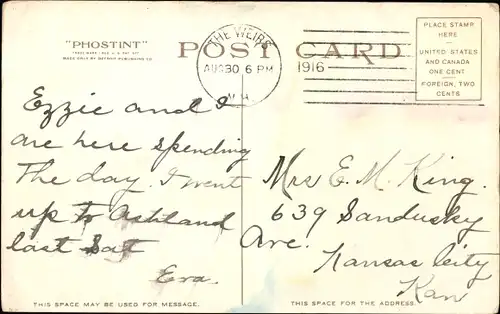 "PHOSTINT"
MADE ONLY BY DETROIT PUBLISHING CO.
POST CARD
THE WEIRS
AUG 30 6 PM
N.H.
1916
PLACE STAMP
HERE
UNITED STATES
AND CANADA
ONE CENT
FOREIGN, TWO
CENTS
Ezzie and I
are here spending
The day. I went
up to Ashland
last Sat
Eva.
Mrs E. M. King.
639 Sandusky
Ave.
Kansas City
Kan
THIS SPACE MAY BE USED FOR MESSAGE.
THIS SPACE FOR THE ADDRESS.